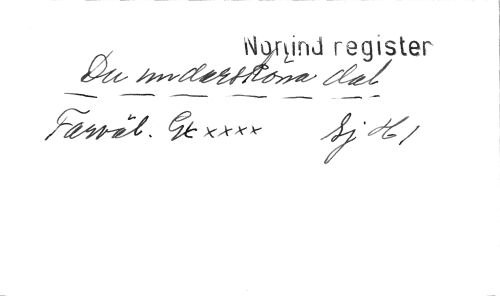 Norlind register
Du undersköna dal
Farväl. Gt xxxx Sj H1